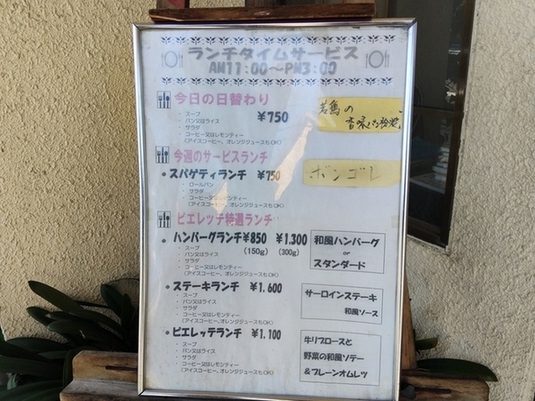 ランチタイムサービス
AM11:00～PM3:00
今日の日替わり
¥750
・ スープ
・ パン又はライス
・ サラダ
・ コーヒー又はレモンティー
(アイスコーヒー、オレンジジュースもOK)
若鶏の
今週のサービスランチ
・スパゲティランチ ¥750
・ ロールパン
・ サラダ
・ コーヒー又はレモンティー
(アイスコーヒー、オレンジジュースもOK)
ボンゴレ
ピエレッテ特選ランチ
・ハンバーグランチ¥850 ¥1.300
(150g) (300g)
・ スープ
・ パン又はライス
・ サラダ
・ コーヒー又はレモンティー
(アイスコーヒー、オレンジジュースもOK)
和風ハンバーグ
or
スタンダード
・ステーキランチ ¥1.600
・ スープ
・ パン又はライス
・ サラダ
・ コーヒー又はレモンティー
(アイスコーヒー、オレンジジュースもOK)
サーロインステーキ
和風ソース
・ピエレッテランチ ¥1.100
・ スープ
・ パン又はライス
・ サラダ
・ コーヒー又はレモンティー
(アイスコーヒー、オレンジジュースもOK)
牛リブロースと
野菜の和風ソテー
&プレーンオムレツ